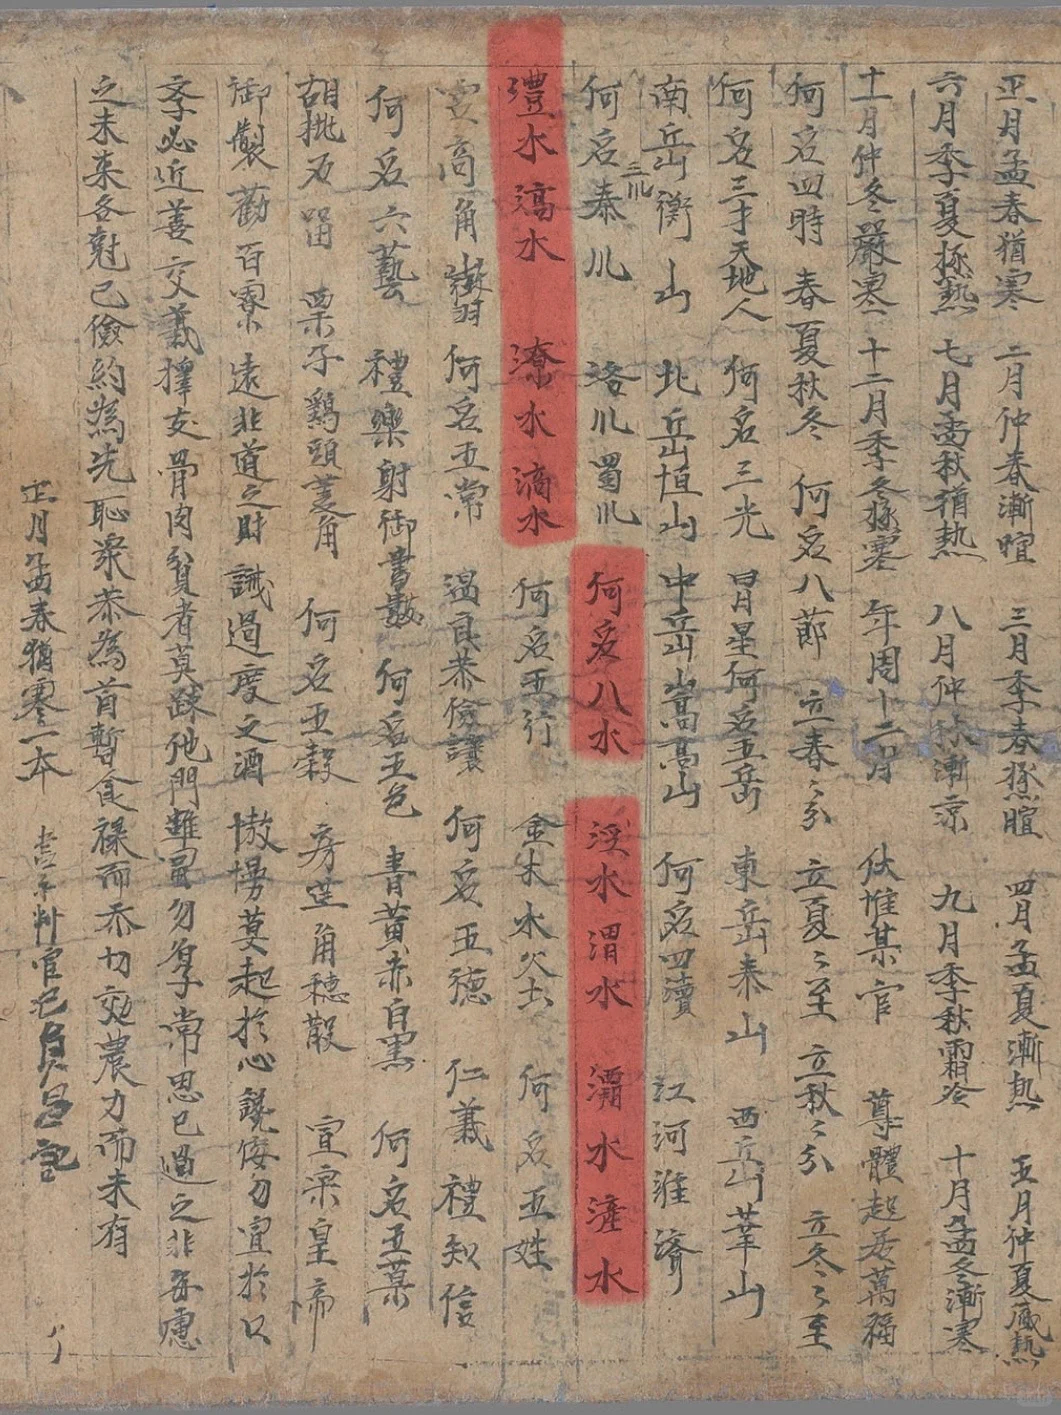 正月孟春猶寒 二月仲春漸暄 三月季春極暄 四月孟夏漸熱 五月仲夏盛熱
六月季夏極熱 七月孟秋猶熱 八月仲秋漸涼 九月季秋霜冷 十月孟冬漸寒
十一月仲冬嚴寒 十二月季冬極寒 年周十二月 伏惟某官 尊體起居萬福
何名四時 春夏秋冬 何名八節 立春〻分 立夏〻至 立秋〻分 立冬〻至
何名三才天地人 何名三光 日月星何名五岳 東岳泰山 西岳華山
南岳衡山 北岳恒山 中岳嵩高山 何名四瀆 江河淮濟
何名三川 秦川 洛川蜀川 何名八水 涇水渭水 滻水
澧水滈水 潦水滴水 何名五行 金木水火土 何名五姓
宮商角徵羽 何名五常 溫良恭儉讓 何名五德 仁義禮知信
何名六藝 禮樂射御書數 何名五色 青黃赤白黑 何名五菓
胡桃石留 栗子鷄頭菱角 何名五穀 房芒角穗散 宣宗皇帝
御製勸百寮 遠非道之財 誡過度之酒 傲慢莫起於心 讒佞勿宣於口
孝必近善交義擇友骨肉貧者莫踈他門雖冨勿厚常思已過之非每慮
之未來各尅己儉約為先恥衆恭為首暫食祿而忝切効農力而未有
正月孟春猶寒一本 判官氾員昌記